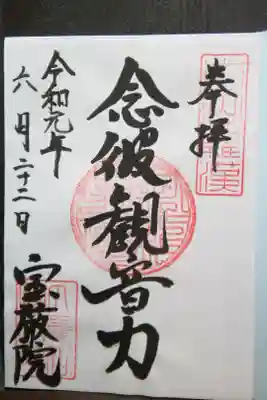 奉拝
念彼観音力
令和元年
六月二十二日
宝厳院